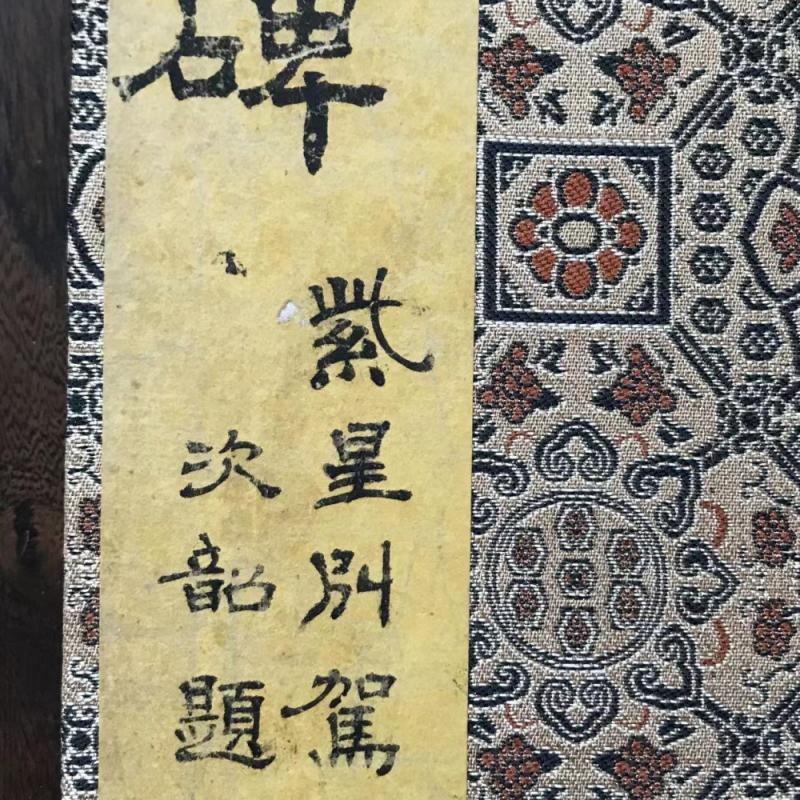 碑
紫星別駕
次韶題